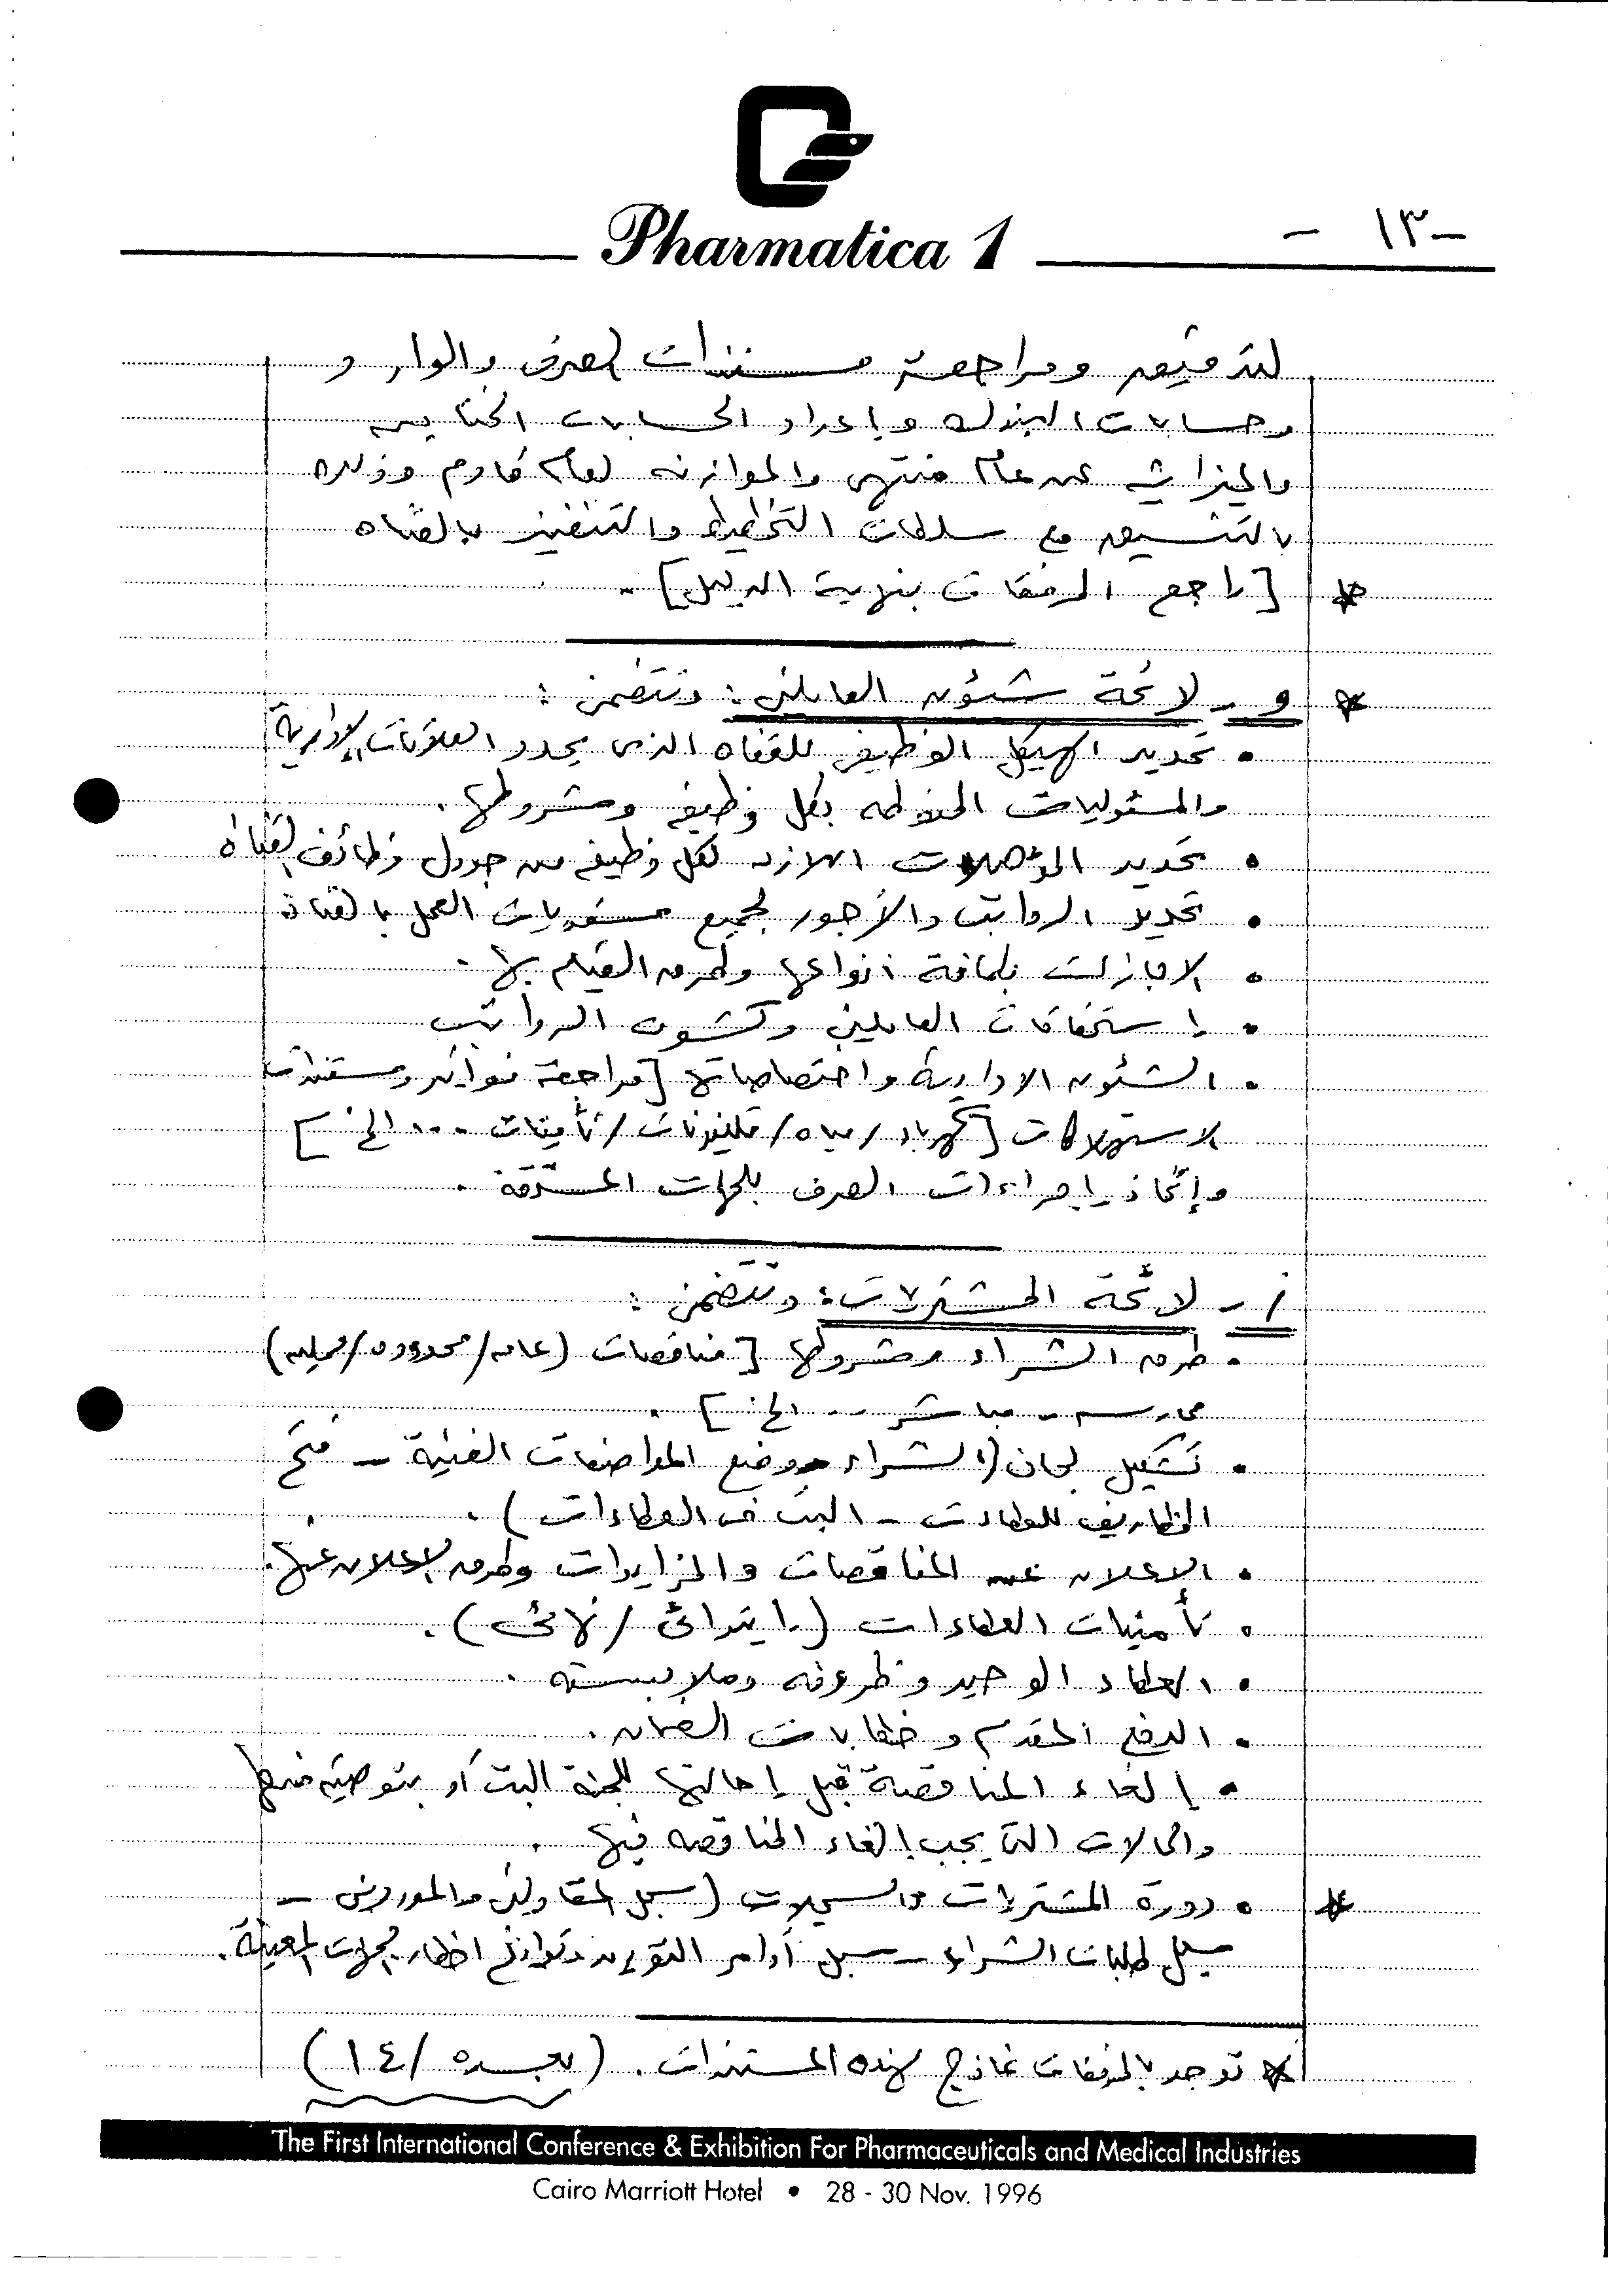 Pharmatica 1
- ١٣ -
للتدقيق ومراجعة مستندات الصرف والوارد و
وحسابات البنوك وإعداد الحسابات الختاميه
والميزانية عن عام منتهى والموازنه لعام قادم وذلك
بالتنسيق مع سلطات التخطيط والتنفيذ بالقناه
* [ راجع المرفقات بنهاية الدليل ] .
* و - لائحة شئون العاملين : وتتضمن :
• تحديد الهيكل الوظيفى للقناه الذى يحدد العلاقات الإدارية
والمسئوليات المنوطه بكل وظيفه وشروطها .
• تحديد المؤهلات اللازمه لكل وظيفه من جدول وظائف القناه
• تحديد الرواتب والأجور لجميع مستويات العمل بالقناة
• الاجازات بكافة أنواعها وطرق القيام بها .
• إستحقاقات العاملين وكشوف الرواتب
• الشئون الادارية واختصاصاتها [ مراجعة فواتير ومستندات
الاستهلاكات [ كهرباء / مياه / تليفونات / تأمينات ... الخ ]
وإتخاذ إجراءات الصرف للجهات المستحقة .
ز - لائحة المشتريات : وتتضمن :
• طرق الشراء وشروطها [ مناقصات (عامه / محدوده / محليه)
ممارسه - مباشر .. الخ ] .
• تشكيل لجان (الشراء ووضع المواصفات الفنية - فتح
المظاريف للعطاءات - البت فى العطاءات ) .
• الاعلان عن المناقصات والمزايدات وطرق الإعلان عنها .
• تأمينات العطاءات ( إبتدائى / نهائى ) .
• العطاء الوحيد وظروفه وملابسته .
• الدفع المقدم وخطابات الضمان .
• إلغاء المناقصة قبل إحالتها للجنة البت أو بتوصيه منها
والحالات التى يجب إلغاء المناقصه فيها .
* • دورة المشتريات والسجلات ( سجل المقاولين والموردين -
سجل طلبات الشراء - سجل أوامر التوريد وتواريخ اخطار الجهات المعنية .
* توجد بالمرفقات نماذج لهذه المستندات . ( بعده / ١٤ )
The First International Conference & Exhibition For Pharmaceuticals and Medical Industries
Cairo Marriott Hotel • 28 - 30 Nov. 1996